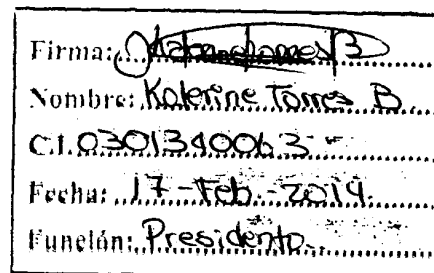 Firma: Katerine Torres B
Nombre: Katerine Torres B.
C.I. 0301340063
Fecha: 17-Feb.-2014.
Función: Presidenta.